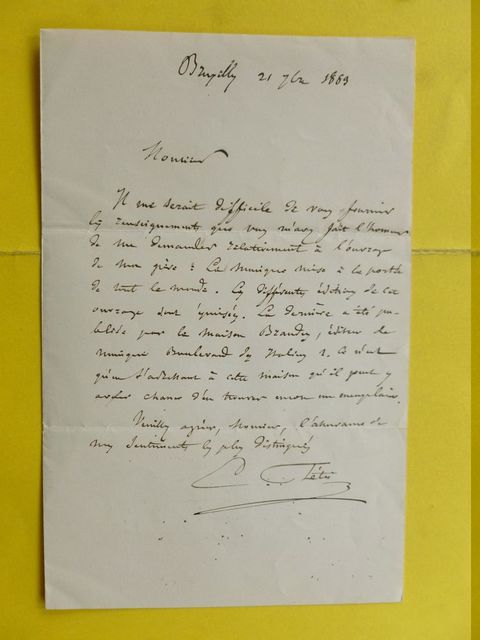 Bruxelles 21 7bre 1883
Monsieur
Il me serait difficile de vous fournir
les renseignements que vous m'avez fait l'honneur
de me demander relativement à l'ouvrage
de mon père : La musique mise à la portée
de tout le monde. Les différentes éditions de cet
ouvrage sont épuisées. La dernière a été pu-
bliée par la maison Brandus, éditeur de
musique Boulevard des Italiens 1. Ce n'est
qu'en s'adressant à cette maison qu'il peut y
avoir chance d'en trouver encore un exemplaire.
Veuillez agréer, Monsieur, l'assurance de
mes sentiments les plus distingués
Fétis